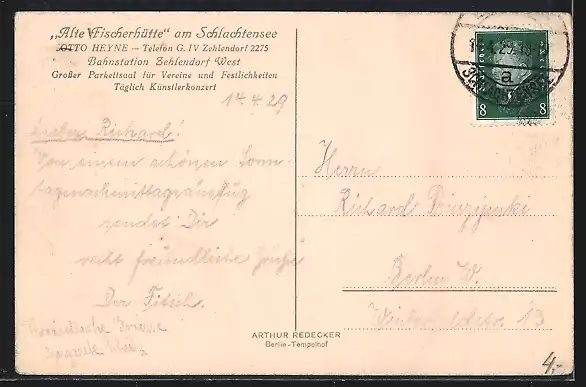 „Alte Fischerhütte" am Schlachtensee
OTTO HEYNE — Telefon G. IV Zehlendorf 2275
Bahnstation Zehlendorf West
Großer Parkettsaal für Vereine und Festlichkeiten
Täglich Künstlerkonzert
14.4.29
Lieber Richard!
Von einem schönen Sonn-
tagnachmittagsausflug
sendet Dir
recht freundliche Grüße
Der Fitsch.
Freundliche Grüsse
Herrn
Richard
Berlin W.
13
ARTHUR REDECKER
Berlin-Tempelhof
a
8 8
4,-